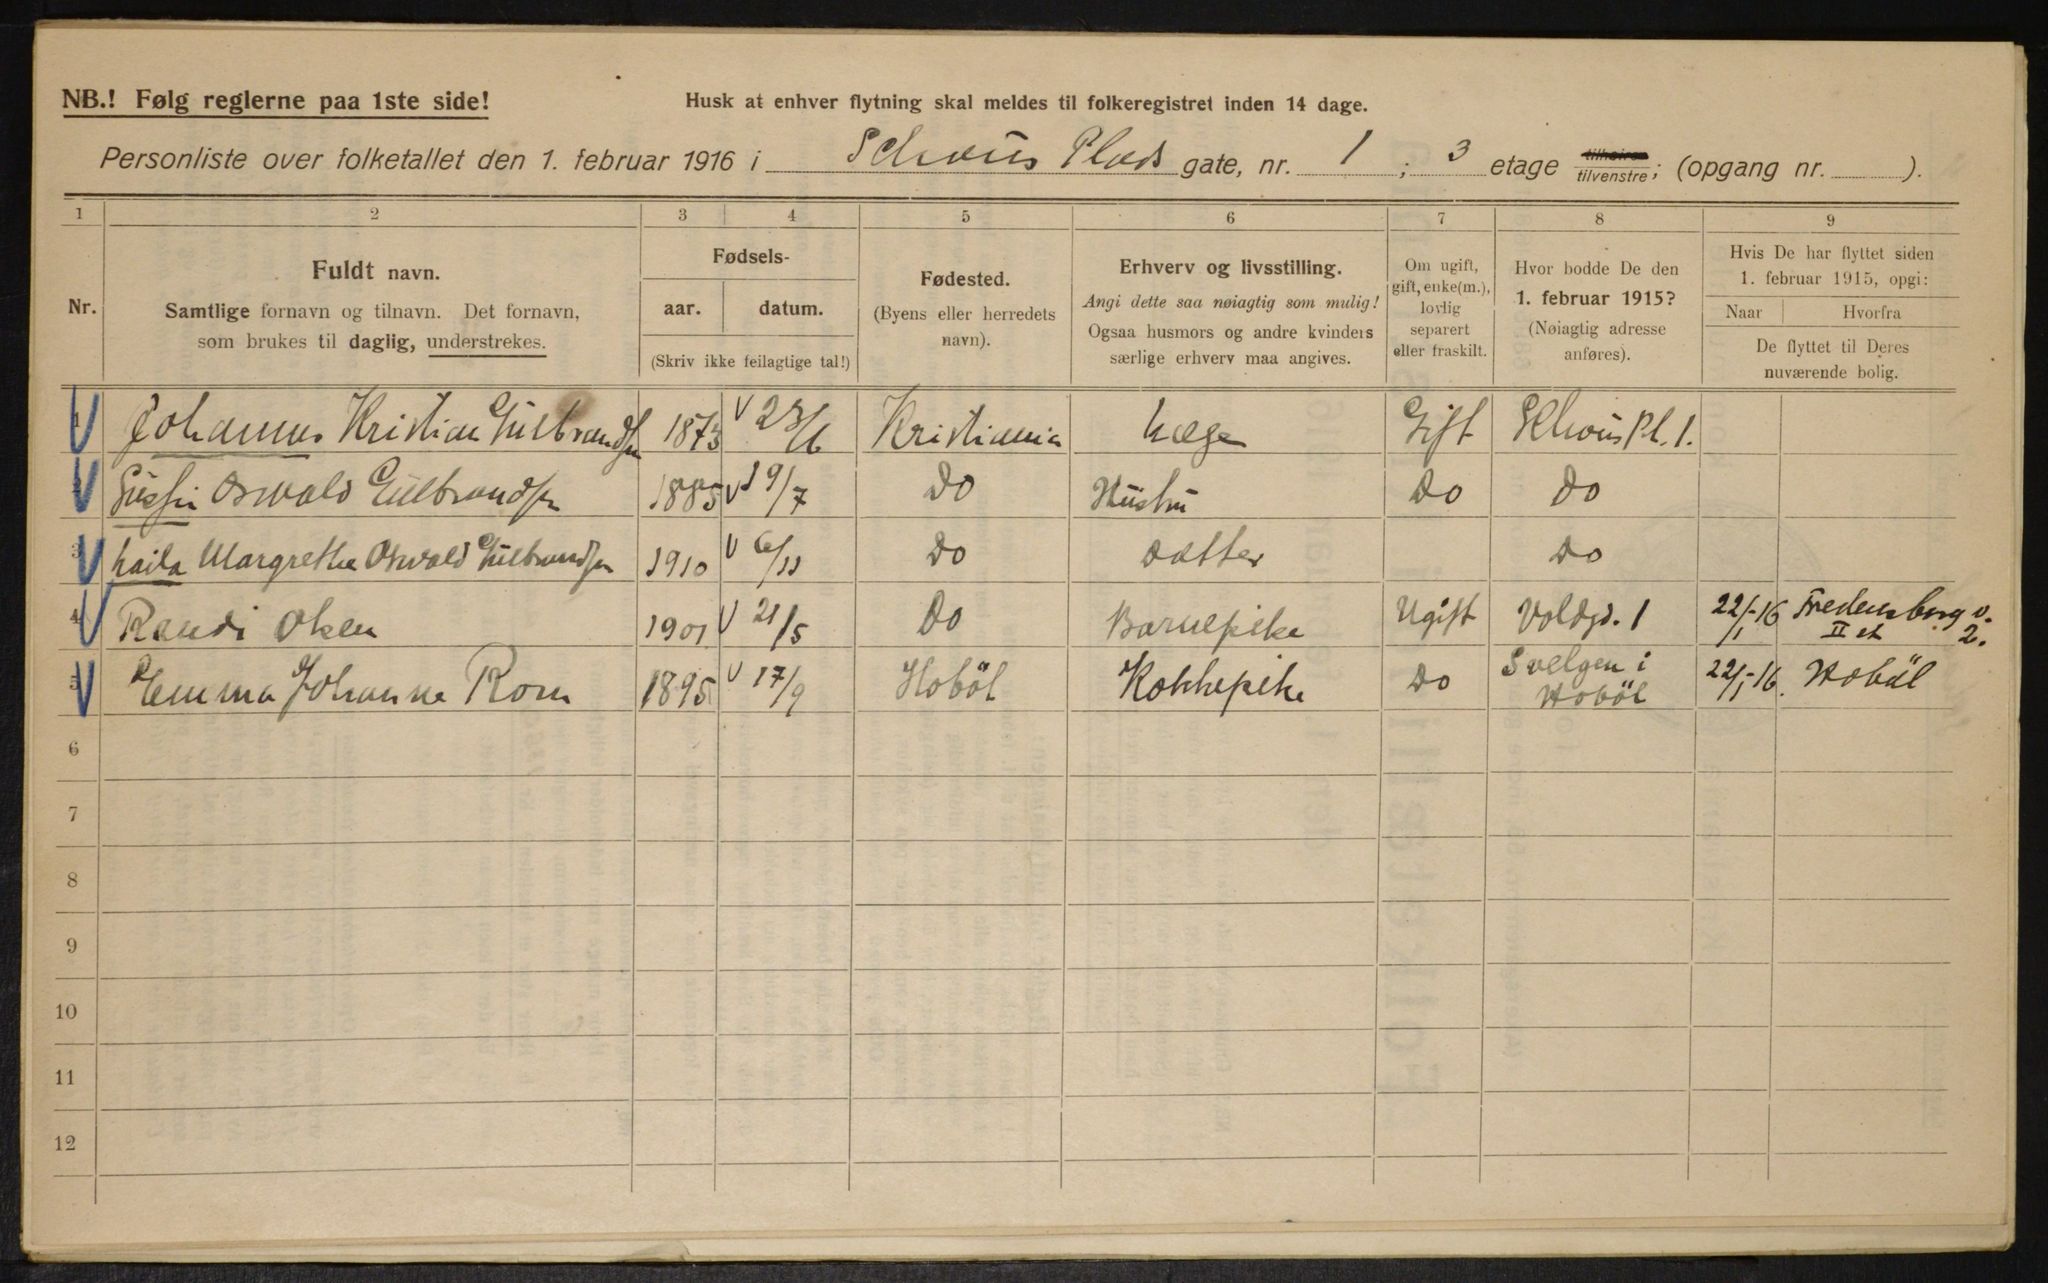 NB.! Følg reglerne paa 1ste side!
Husk at enhver flytning skal meldes til folkeregistret inden 14 dage.
Personliste over folketallet den 1. februar 1916 i Schous Plads gate, nr. 1 ; 3 etage tilhøire tilvenstre; (opgang nr. ).
1 2 3 4 5 6 7 8 9
Nr.
Fuldt navn.
Samtlige fornavn og tilnavn. Det fornavn,
som brukes til daglig, understrekes.
Fødsels-
aar. datum.
(Skriv ikke feilagtige tal!)
Fødested.
(Byens eller herredets
navn).
Erhverv og livsstilling.
Angi dette saa nøiagtig som mulig!
Ogsaa husmors og andre kvinders
særlige erhverv maa angives.
Om ugift,
gift, enke(m.),
lovlig
separert
eller fraskilt.
Hvor bodde De den
1. februar 1915?
(Nøiagtig adresse
anføres).
Hvis De har flyttet siden
1. februar 1915, opgi:
Naar Hvorfra
De flyttet til Deres
nuværende bolig.
1 Johannes Kristian Gulbrandsen 1873 23/6 Kristiania Læge Gift Schous Pl. 1.
2 Oswald Gulbrandsen 1885 19/7 Do Hustru Do Do
3 Laila Margrethe Oswald Gulbrandsen 1910 6/11 Do Datter Do
4 Randi Olsen 1901 21/5 Do Barnepike Ugift Voldgd. 1 22/1-16 Fredensborg v.
II et 2.
5 Emma Johanne Rom 1895 17/9 Hobøl Kokkepike Do Svelgen i
Hobøl 22/1-16. Hobøl
6
7
8
9
10
11
12